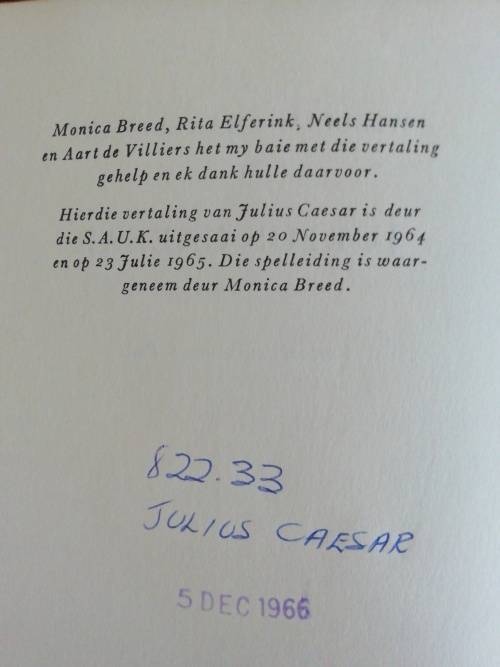 Monica Breed, Rita Elferink, Neels Hansen
en Aart de Villiers het my baie met die vertaling
gehelp en ek dank hulle daarvoor.
Hierdie vertaling van Julius Caesar is deur
die S.A.U.K. uitgesaai op 20 November 1964
en op 23 Julie 1965. Die spelleiding is waar-
geneem deur Monica Breed.
822.33
JULIUS CAESAR
5 DEC 1966